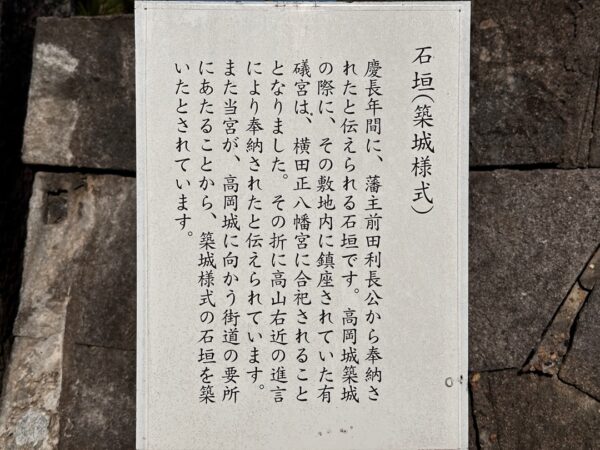 石垣(築城様式)
慶長年間に、藩主前田利長公から奉納さ
れたと伝えられる石垣です。高岡城築城
の際に、その敷地内に鎮座されていた有
礒宮は、横田正八幡宮に合祀されること
となりました。その折に高山右近の進言
により奉納されたと伝えられています。
また当宮が、高岡城に向かう街道の要所
にあたることから、築城様式の石垣を築
いたとされています。